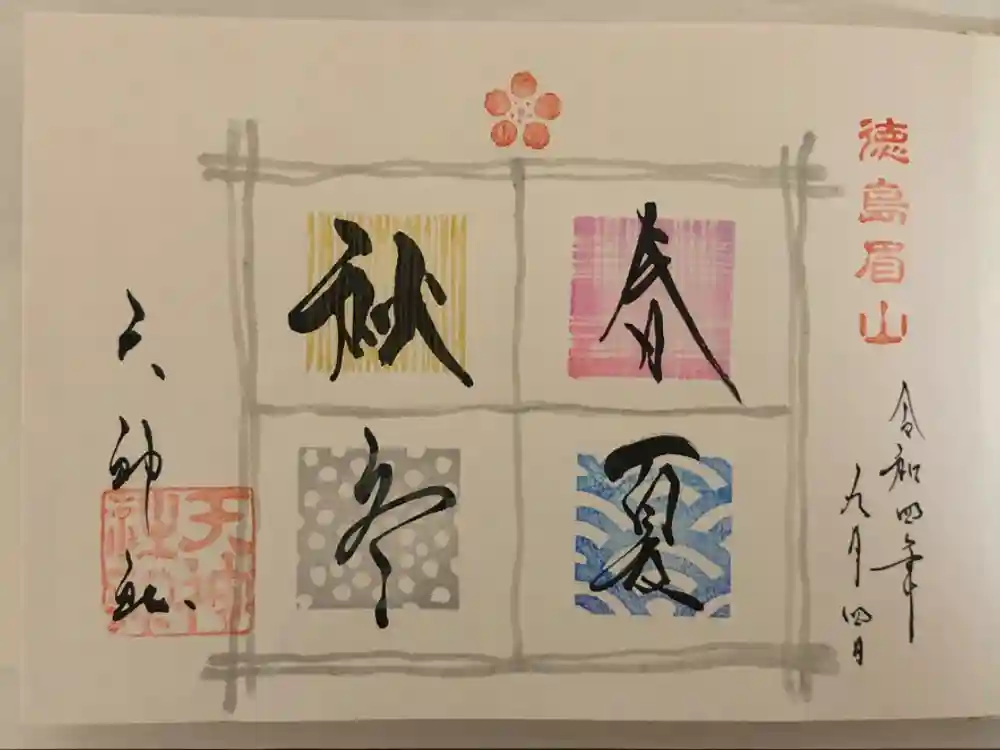 徳島眉山
令和四年
九月四日
春
夏
秋
冬
天神社